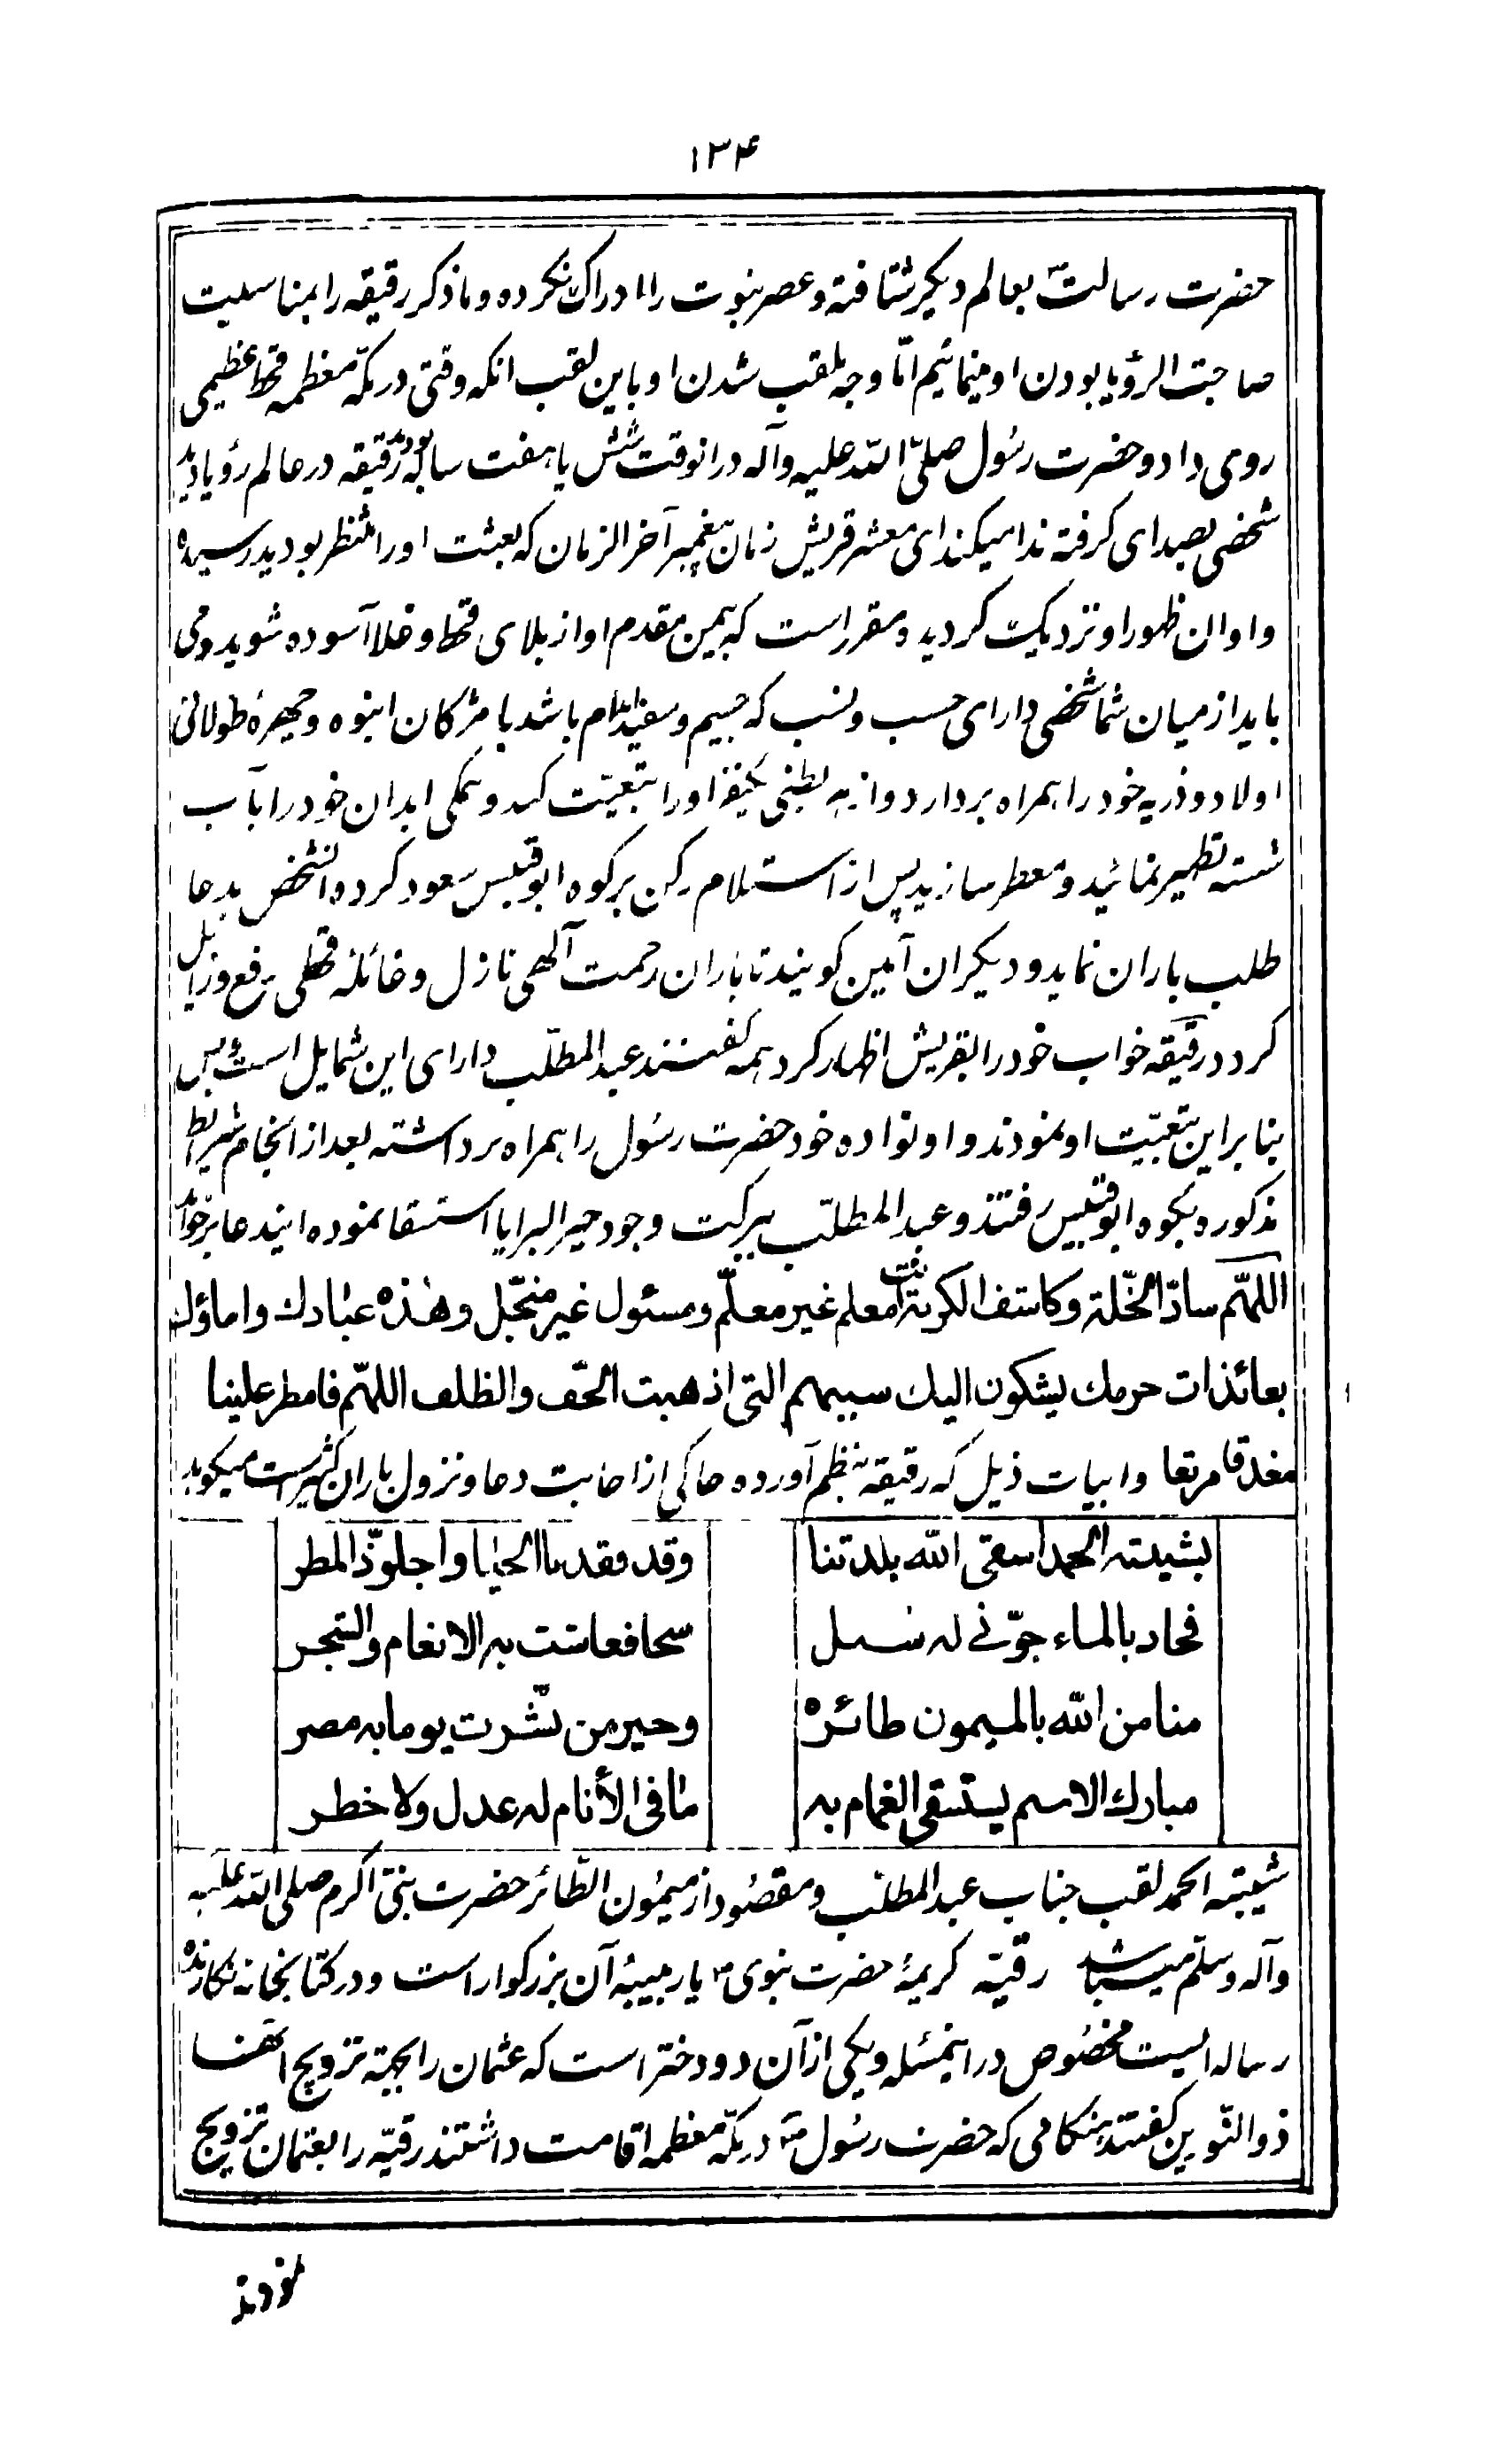 ۱۳۴
حضرت رسالت بعالم دیکر شتافته و عصر نبوت را ادراک نکرده و ما ذکر رقیقه را بمناسبت
صاحبت الرؤیا بودن او مینمائیم امّا وجه ملقب شدن او باین لقب انکه وقتی در مکّه معظمه قحط عظیمی
روی داد و حضرت رسُول صلّی اللّه علیه وآله در انوقت شش یا هفت ساله بودند رقیقه در عالم رؤیا دید
شخصی بصدای کرفته ندا میکند ای معشر قریش زمان پیغمبر آخر الزمان که بعثت او را منتظر بودید رسیده
و اوان ظهور او نزدیک کردید و مقرر است که بیمن مقدم او از بلای قحط و غلا آسوده شوید ومی
باید از میان شما شخصی دارای حسب و نسب که جسیم و سفید اندام باشد با مژکان انبوه و چهرهٔ طولانی
اولاد و ذریه خود را همراه بردارد و از هر بطنی یکنفر او را تبعیّت کند و همکی ابدان خود را بآب
شسته تطهیر نمائید و معطر سازید پس از استلام رکن بر کوه ابو قبیس سعود کرده و انشخص بدعا
طلب باران نماید و دیکران آمین کویند تا باران رحمت آلهی نازل و غائله قحطی رفع و زایل
کردد رقیقه خواب خود را بقریش اظهار کرد همه کفتند عبد المطلّب دارای این شمایل است پس
بنا براین بتعبیّت او نمودند و او نواده خود حضرت رسُول را همراه برداشته بعد از انجام شرایط
مذکوره بکوه ابو قبیس رفتند و عبد المطلّب ببرکت وجود خیر البرایا استسقا نموده ایندعا برخواند
اللّهمّ سادّ الخّلة وکاشف الکربة انت معلم غیر معلّم ومسئول غیر منجّل وهٰذه عبٰادك واماؤك
بعائذات حرمك یشکون الیك سبیهم التی اذهبت الخّف والظلف اللّهمّ فامطر علینا
مغدقا مرتعا وابیات ذیل که رقیقه بنظم آورده حاکی از اجابت دعا و نزول باران کثیر است میکوید
بشیبته الحمد اسقی اللّه بلدتنا وقد فقدنا الحیٰا واجلوّذ المطر
فجاد بالماء جوّنی له سبل سحا فعاشت به الانعام والشجر
منا من اللّه بالمیمون طائره وخیر من بشّرت یوما به مصر
مبارك الاسم یستسقی الغمام به مٰا فی الأنام له عدل ولا خطر
شیبته الحمد لقب جناب عبد المطلّب و مقصُود از میمُون الطّائر حضرت نبیّ اکرم صلی اللّه علیه
وآله وسلّم میباشد رقیّه کریمهٔ حضرت نبوی ص یا ربیبهٔ آن بزرکوار است و در کتابخانه نکارنده
رساله ایست مخصُوص در اینمسئله و یکی از آن دو دختر است که عثمان را بجهة تزویج انها
ذوالنّورین کفتند هنکامی که حضرت رسُول ص در مکّه معظمه اقامت داشتند رقیّه را بعثمان تزویج
نمودند